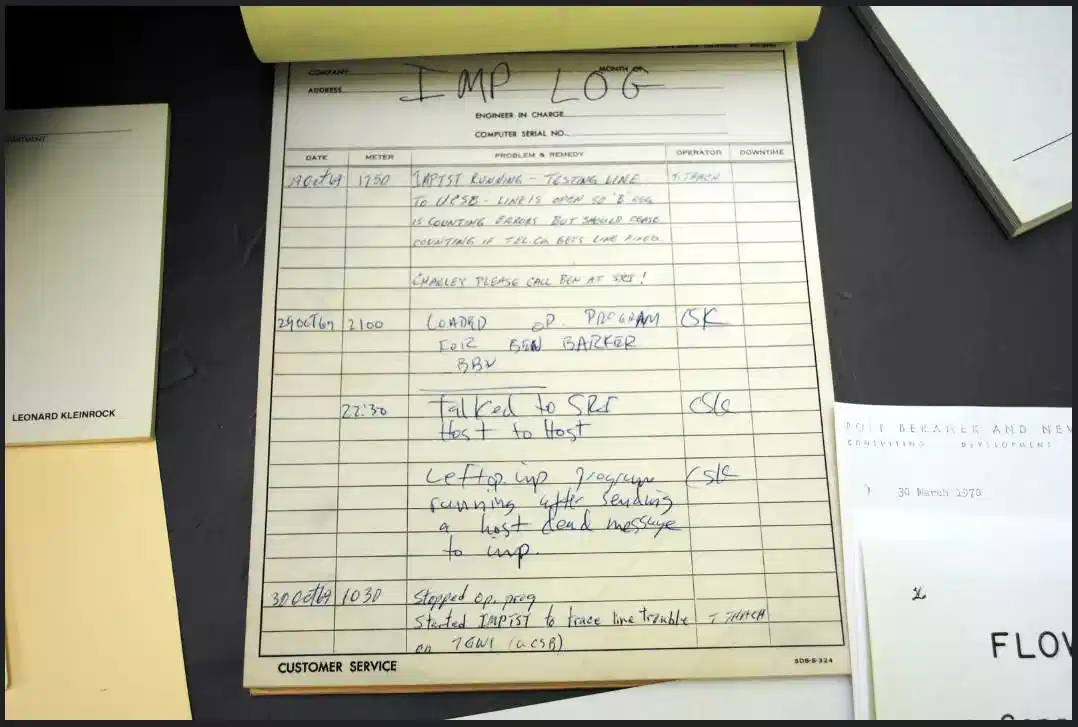 COMPANY
MONTH OF
IMP LOG
ADDRESS
ENGINEER IN CHARGE
COMPUTER SERIAL NO.
DATE METER PROBLEM & REMEDY OPERATOR DOWNTIME
29Oct69 1750 IMPTST RUNNING - TESTING LINE T. THACH
TO UCSB - LINE IS OPEN SO 'B' REG
IS COUNTING ERRORS BUT SHOULD CEASE
COUNTING IF TEL.CO GETS LINE FIXED.
CHARLEY PLEASE CALL BEN AT SRI!
29OCT69 2100 LOADED OP. PROGRAM CSK
FOR BEN BARKER
BBN
22:30 Talked to SRI CSK
Host to Host
Left op. imp program CSK
running after sending
a host dead message
to imp.
30Oct69 1030 Stopped op. prog
Started IMPTST to trace line trouble T THACH
on (UCSB)
CUSTOMER SERVICE
SDS-S-324
LEONARD KLEINROCK
BERANEK AND NEW
CONSULTING DEVELOPMENT
30 March 1970
FLOW